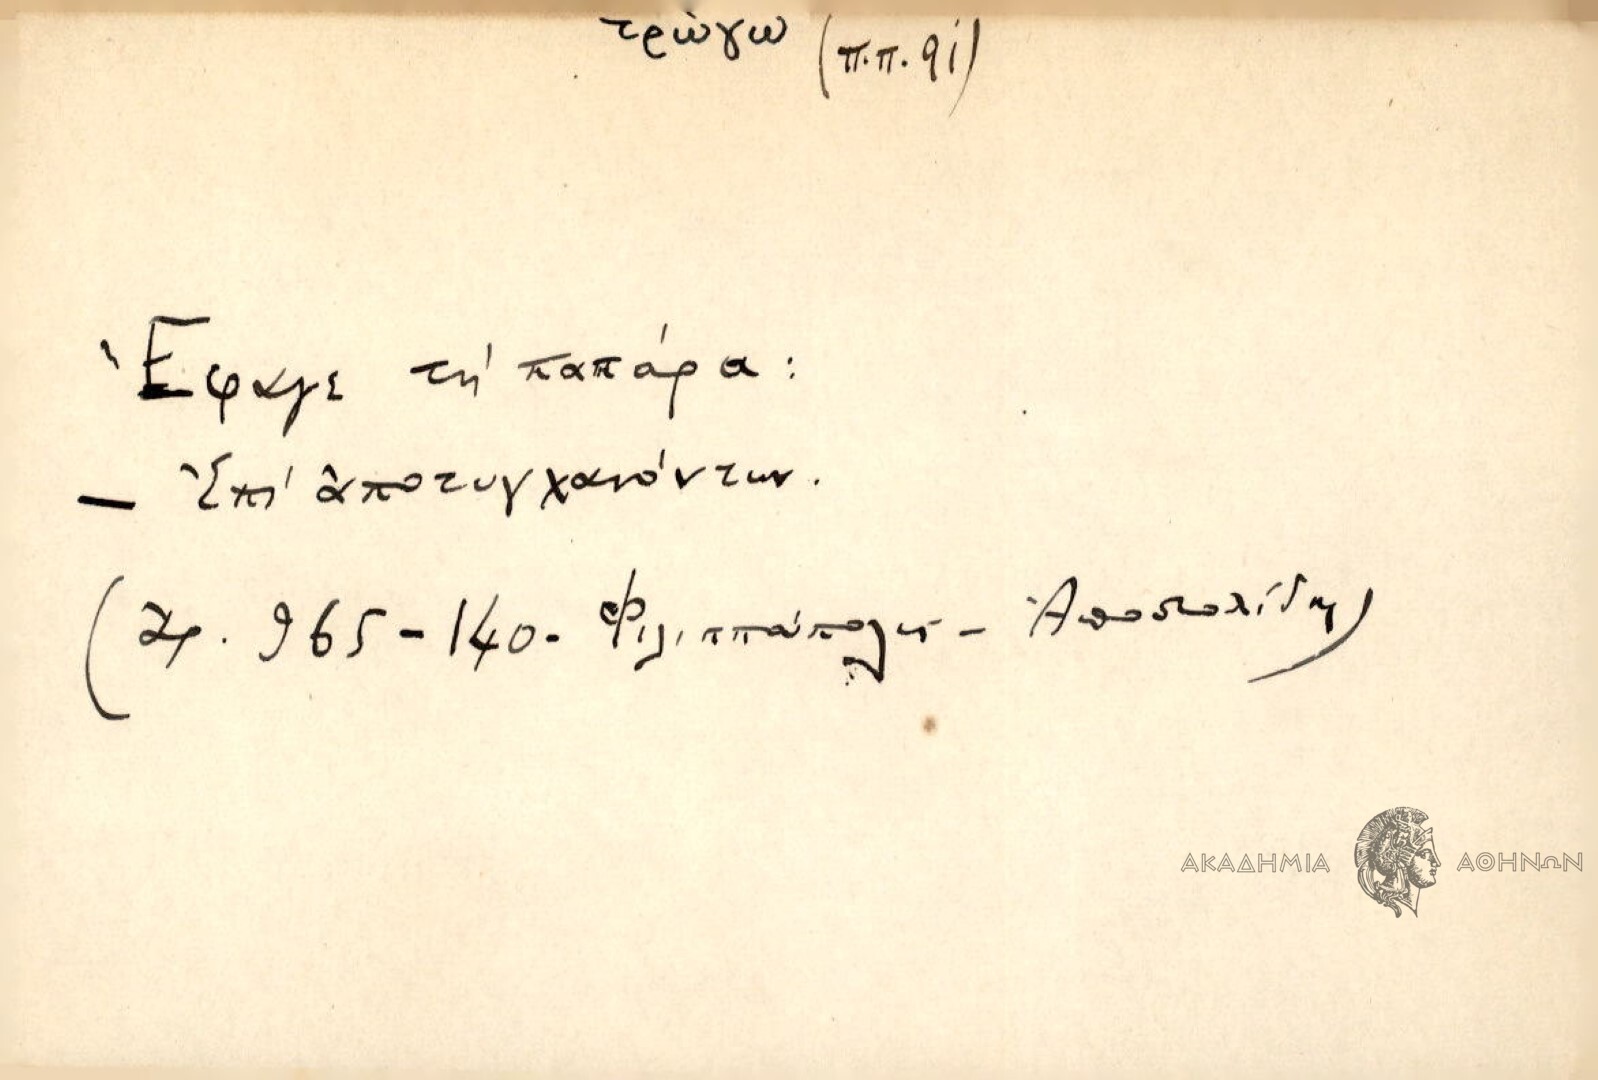 τρώγω (π.π. 91)
Ἔφαγε τή παπάρα:
— Ἐπί ἀποτυγχανόντων.
(Ἀρ. 965-140- Φιλιππούπολις - Ἀποστολίδης)
ΑΚΑΔΗΜΙΑ ΑΘΗΝΩΝ